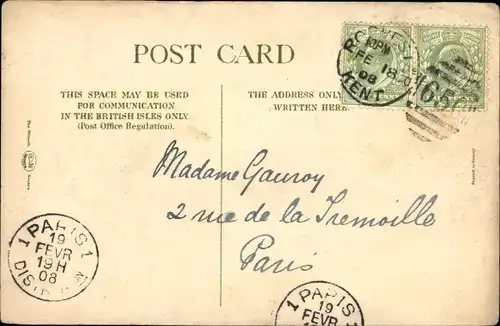 POST CARD
THIS SPACE MAY BE USED
FOR COMMUNICATION
IN THE BRITISH ISLES ONLY
(Post Office Regulation).
THE ADDRESS ONLY
WRITTEN HERE
ROCHEST
10PM
FE 18
08
KENT
656
Madame Gauroy
2 rue de la Tremoille
Paris
1 PARIS 1
19
FEVR
19H
08
1 PARIS 1
19
FEVR